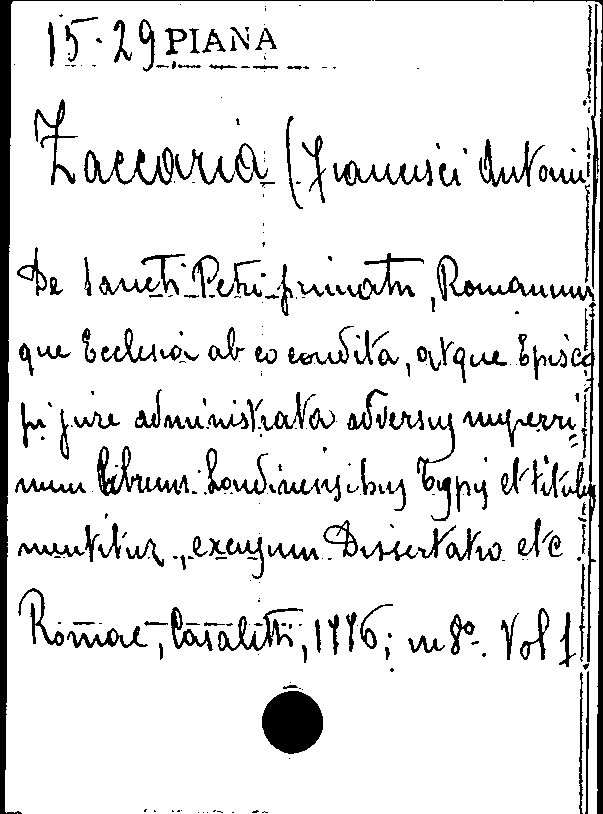 15-29 PIANA
Zaccaria (Francisci Antonii
De Sancti Petri primatu, Romanum
que Ecclesia ab eo condita, atque Episco
pi jure administrata adversus nuperri
mum librum Londinensibus Typis et titulis
mentitur, excusum Dissertatio etc
Romae, Casaletti, 1776; in 8º. Vol 1